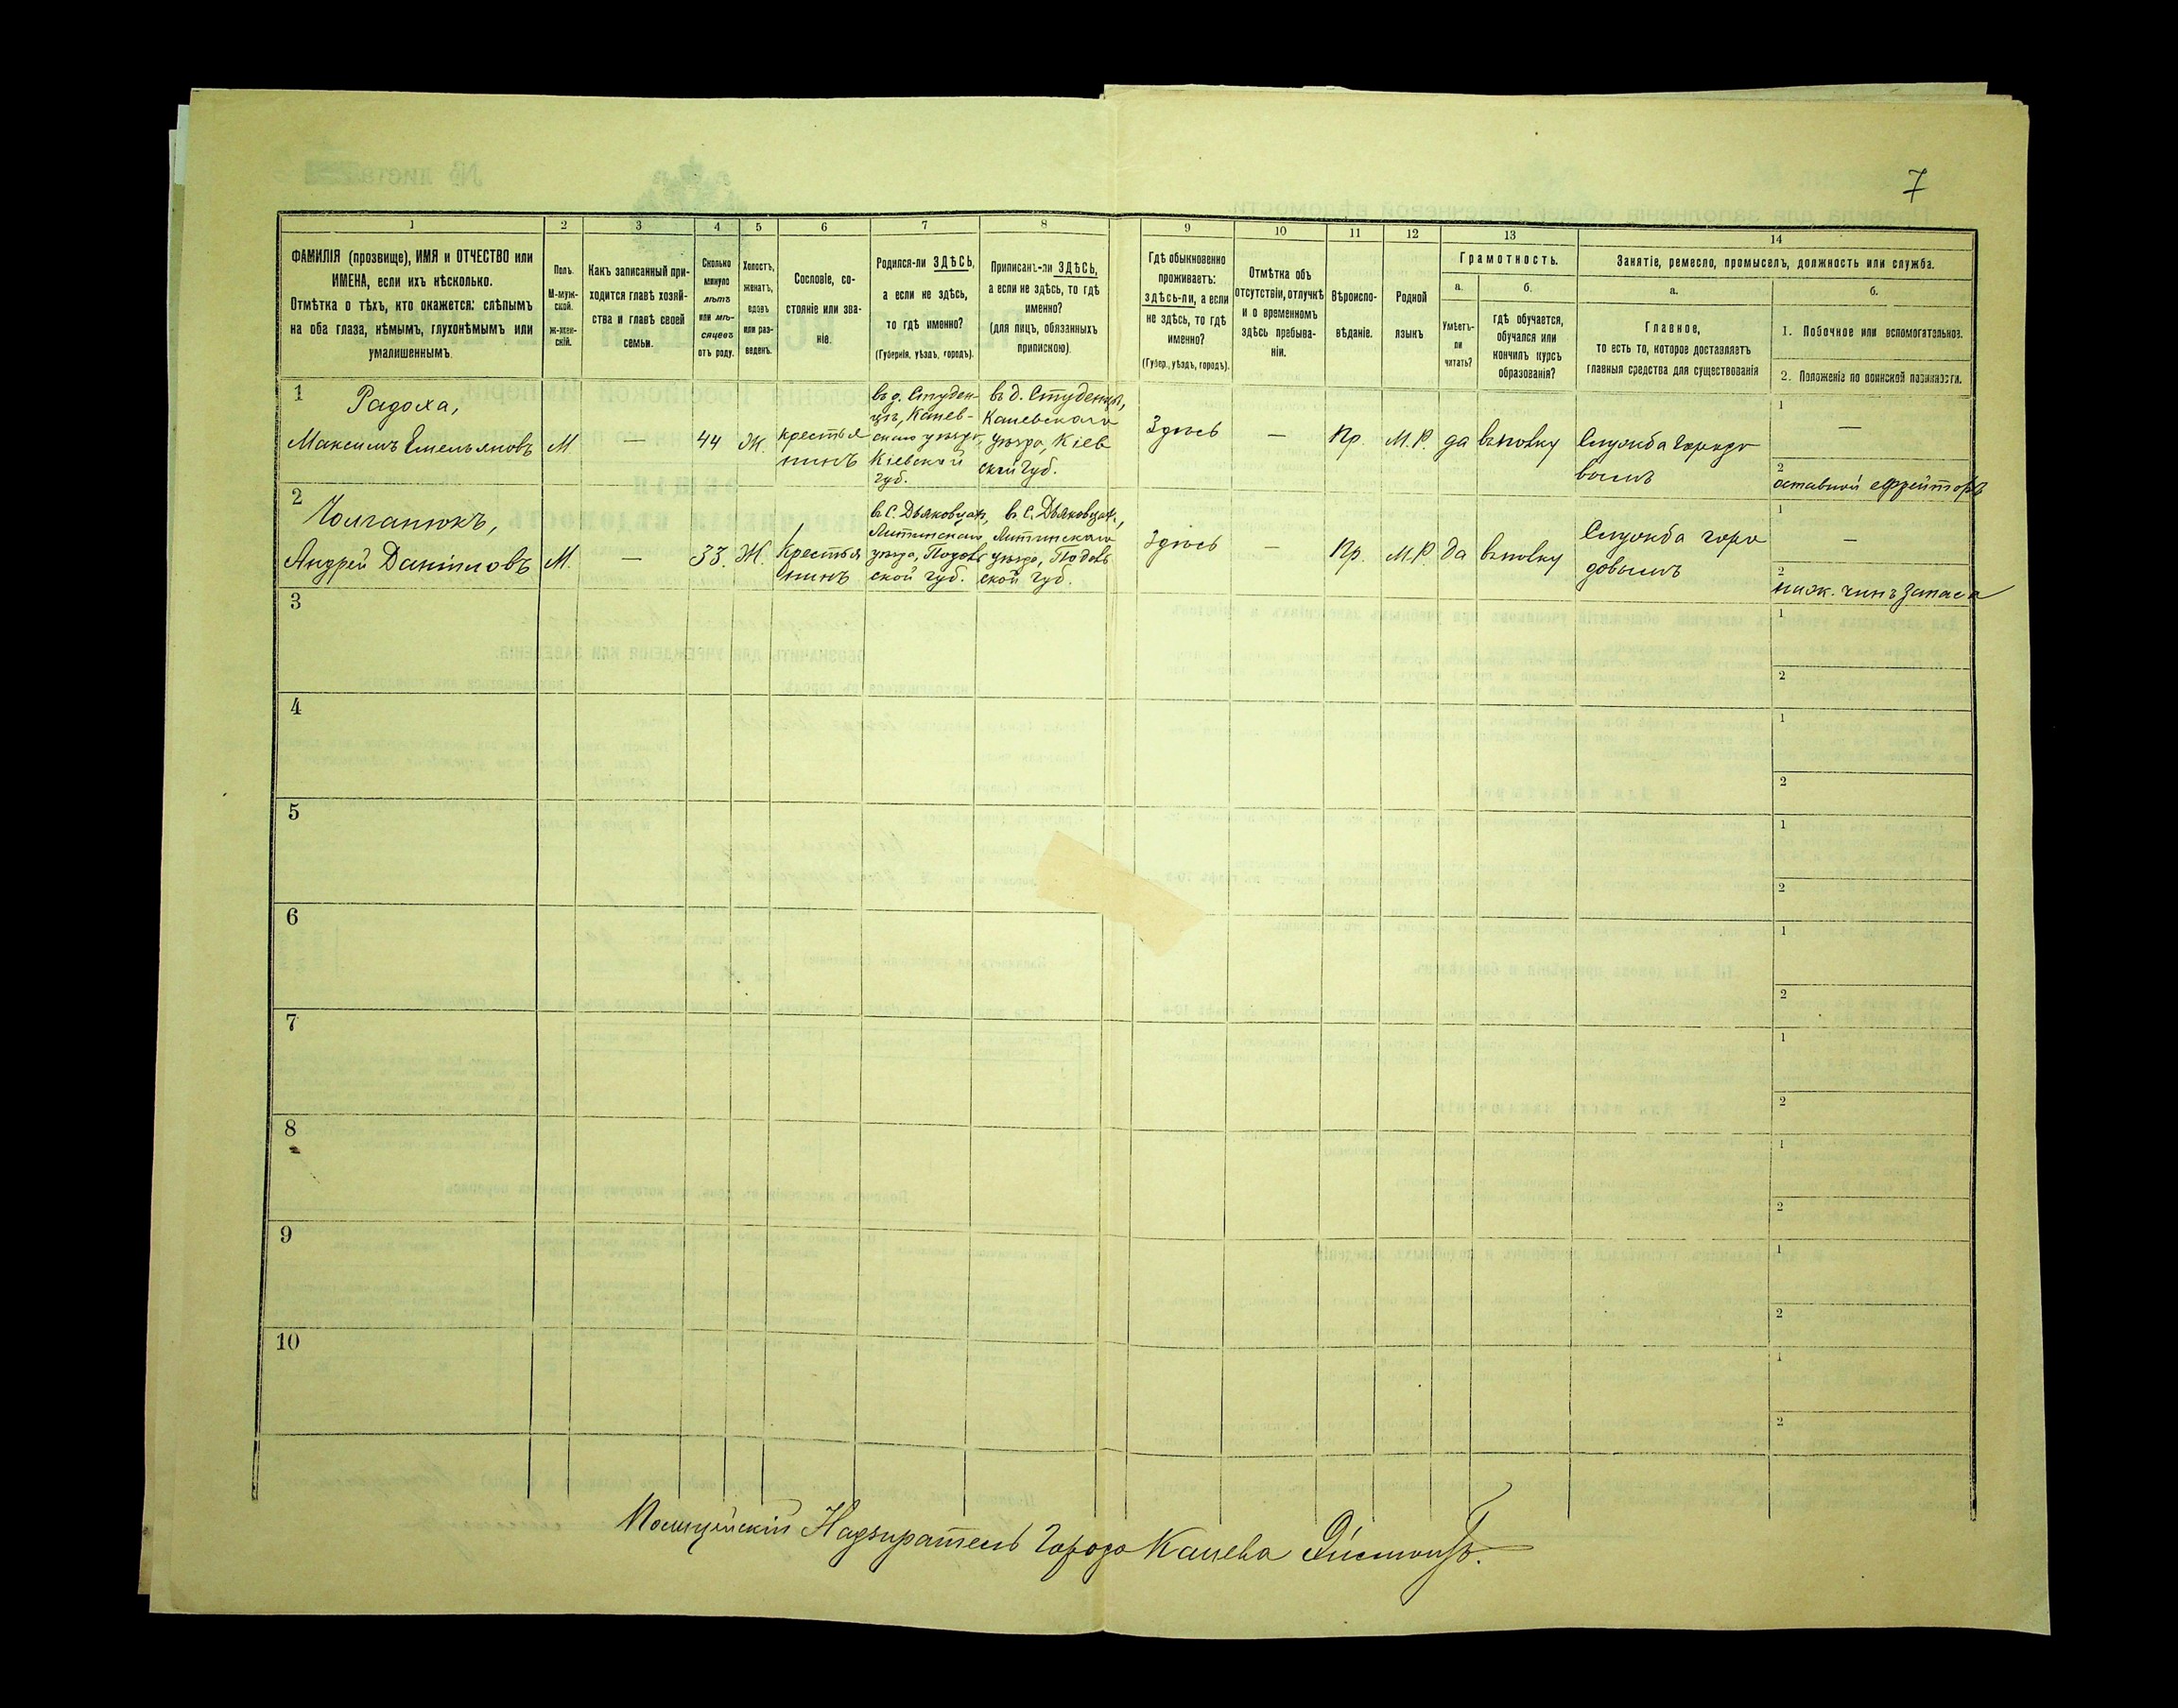 7
1 2 3 4 5 6 7 8 9 10 11 12 13 14
ФАМИЛІЯ (прозвище), ИМЯ и ОТЧЕСТВО или
ИМЕНА, если ихъ нѣсколько.
Отмѣтка о тѣхъ, кто окажется: слѣпымъ
на оба глаза, нѣмымъ, глухонѣмымъ или
умалишеннымъ.
Полъ.
М-муж-
ской.
Ж-жен-
скій.
Какъ записанный при-
ходится главѣ хозяй-
ства и главѣ своей
семьи.
Сколько
минуло
лѣтъ
или мѣ-
сяцевъ
отъ роду.
Холостъ,
женатъ,
вдовъ
или раз-
веденъ.
Сословіе, со-
стояніе или зва-
ніе.
Родился-ли ЗДѢСЬ,
а если не здѣсь,
то гдѣ именно?
(Губернія, уѣздъ, городъ).
Приписанъ-ли ЗДѢСЬ,
а если не здѣсь, то гдѣ
именно?
(для лицъ, обязанныхъ
припискою).
Гдѣ обыкновенно
проживаетъ:
здѣсь-ли, а если
не здѣсь, то гдѣ
именно?
(Губер., уѣздъ, городъ).
Отмѣтка объ
отсутствіи, отлучкѣ
и о временномъ
здѣсь пребыва-
ніи.
Вѣроиспо-
вѣданіе.
Родной
языкъ
Грамотность.
а.
Умѣетъ-
ли
читать?
б.
гдѣ обучается,
обучался или
кончилъ курсъ
образованія?
Занятіе, ремесло, промыселъ, должность или служба.
а.
Главное,
то есть то, которое доставляетъ
главныя средства для существованія
б.
1. Побочное или вспомогательное.
2. Положеніе по воинской повинности.
1
Радоха,
Максимъ Емельяновъ
М
—
44
Ж.
крестья
нинъ
въ д. Студен-
цъ, Канев-
скаго уѣзда,
Кіевской
губ.
въ д. Студенцѣ,
Каневскаго
уѣзда, Кіев
ской губ.
Здѣсь
—
Пр.
М.Р.
да
въ полку
Служба городо
вымъ
1
—
2
оставной ефрейторъ
2
Андрей Даниловъ
М.
—
33.
Ж.
Крестья
нинъ
въ С. Дьяковцахъ,
Литинскаго
уѣзда, Подоль
ской губ.
въ С. Дьяковцахъ,
Литинскаго
уѣзда, Подоль
ской губ.
Здѣсь
—
Пр.
М.Р.
да
въ полку
Служба горо
довымъ
1
—
2
ниж. чинъ запаса
3
1
2
4
1
2
5
1
2
6
1
2
7
1
2
8
1
2
9
1
2
10
1
2
Полицейскій Надзиратель Города Канева